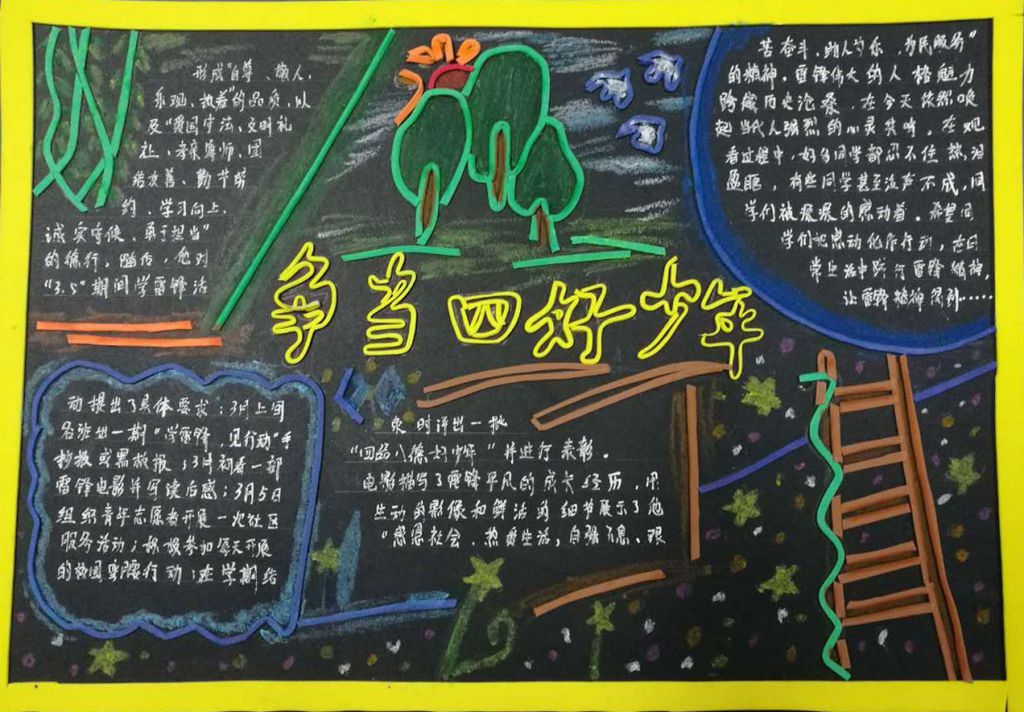 形成"自尊、敬人、
乐观、执着"的品质，以
及"爱国守法、文明礼
礼、孝亲尊师、团
结友善、勤节
约、学习向上、
诚实守信、勇于担当"
的德行。
"3.5"期间学雷锋活
争当四好少年
动提出了具体要求：3月上间
各班出一期"学雷锋，见行动"手
抄报或黑板报；3月初看一部
雷锋电影并写读后感；3月5日
组织青年志愿者开展一次社区
服务活动；积极参加每天开展
的校园行动；在学期结
束时评出一批
"四好少年"并进行表彰。
电影描写了雷锋平凡的成长经历，用
生动的影像和鲜活的细节展示了他
"感恩社会、热爱生活，自强不息、艰
苦奋斗、助人为乐，为民服务"
的精神。雷锋伟大的人格魅力
跨越历史沧桑，在今天依然唤
起当代人强烈的心灵共鸣。在观
看过程中，好多同学都忍不住热泪
盈眶，有些同学甚至泣声不成，同
学们被深深的感动着。希望同
学们把感动化作行动，在日
常生活中践行雷锋精神，
让雷锋精神